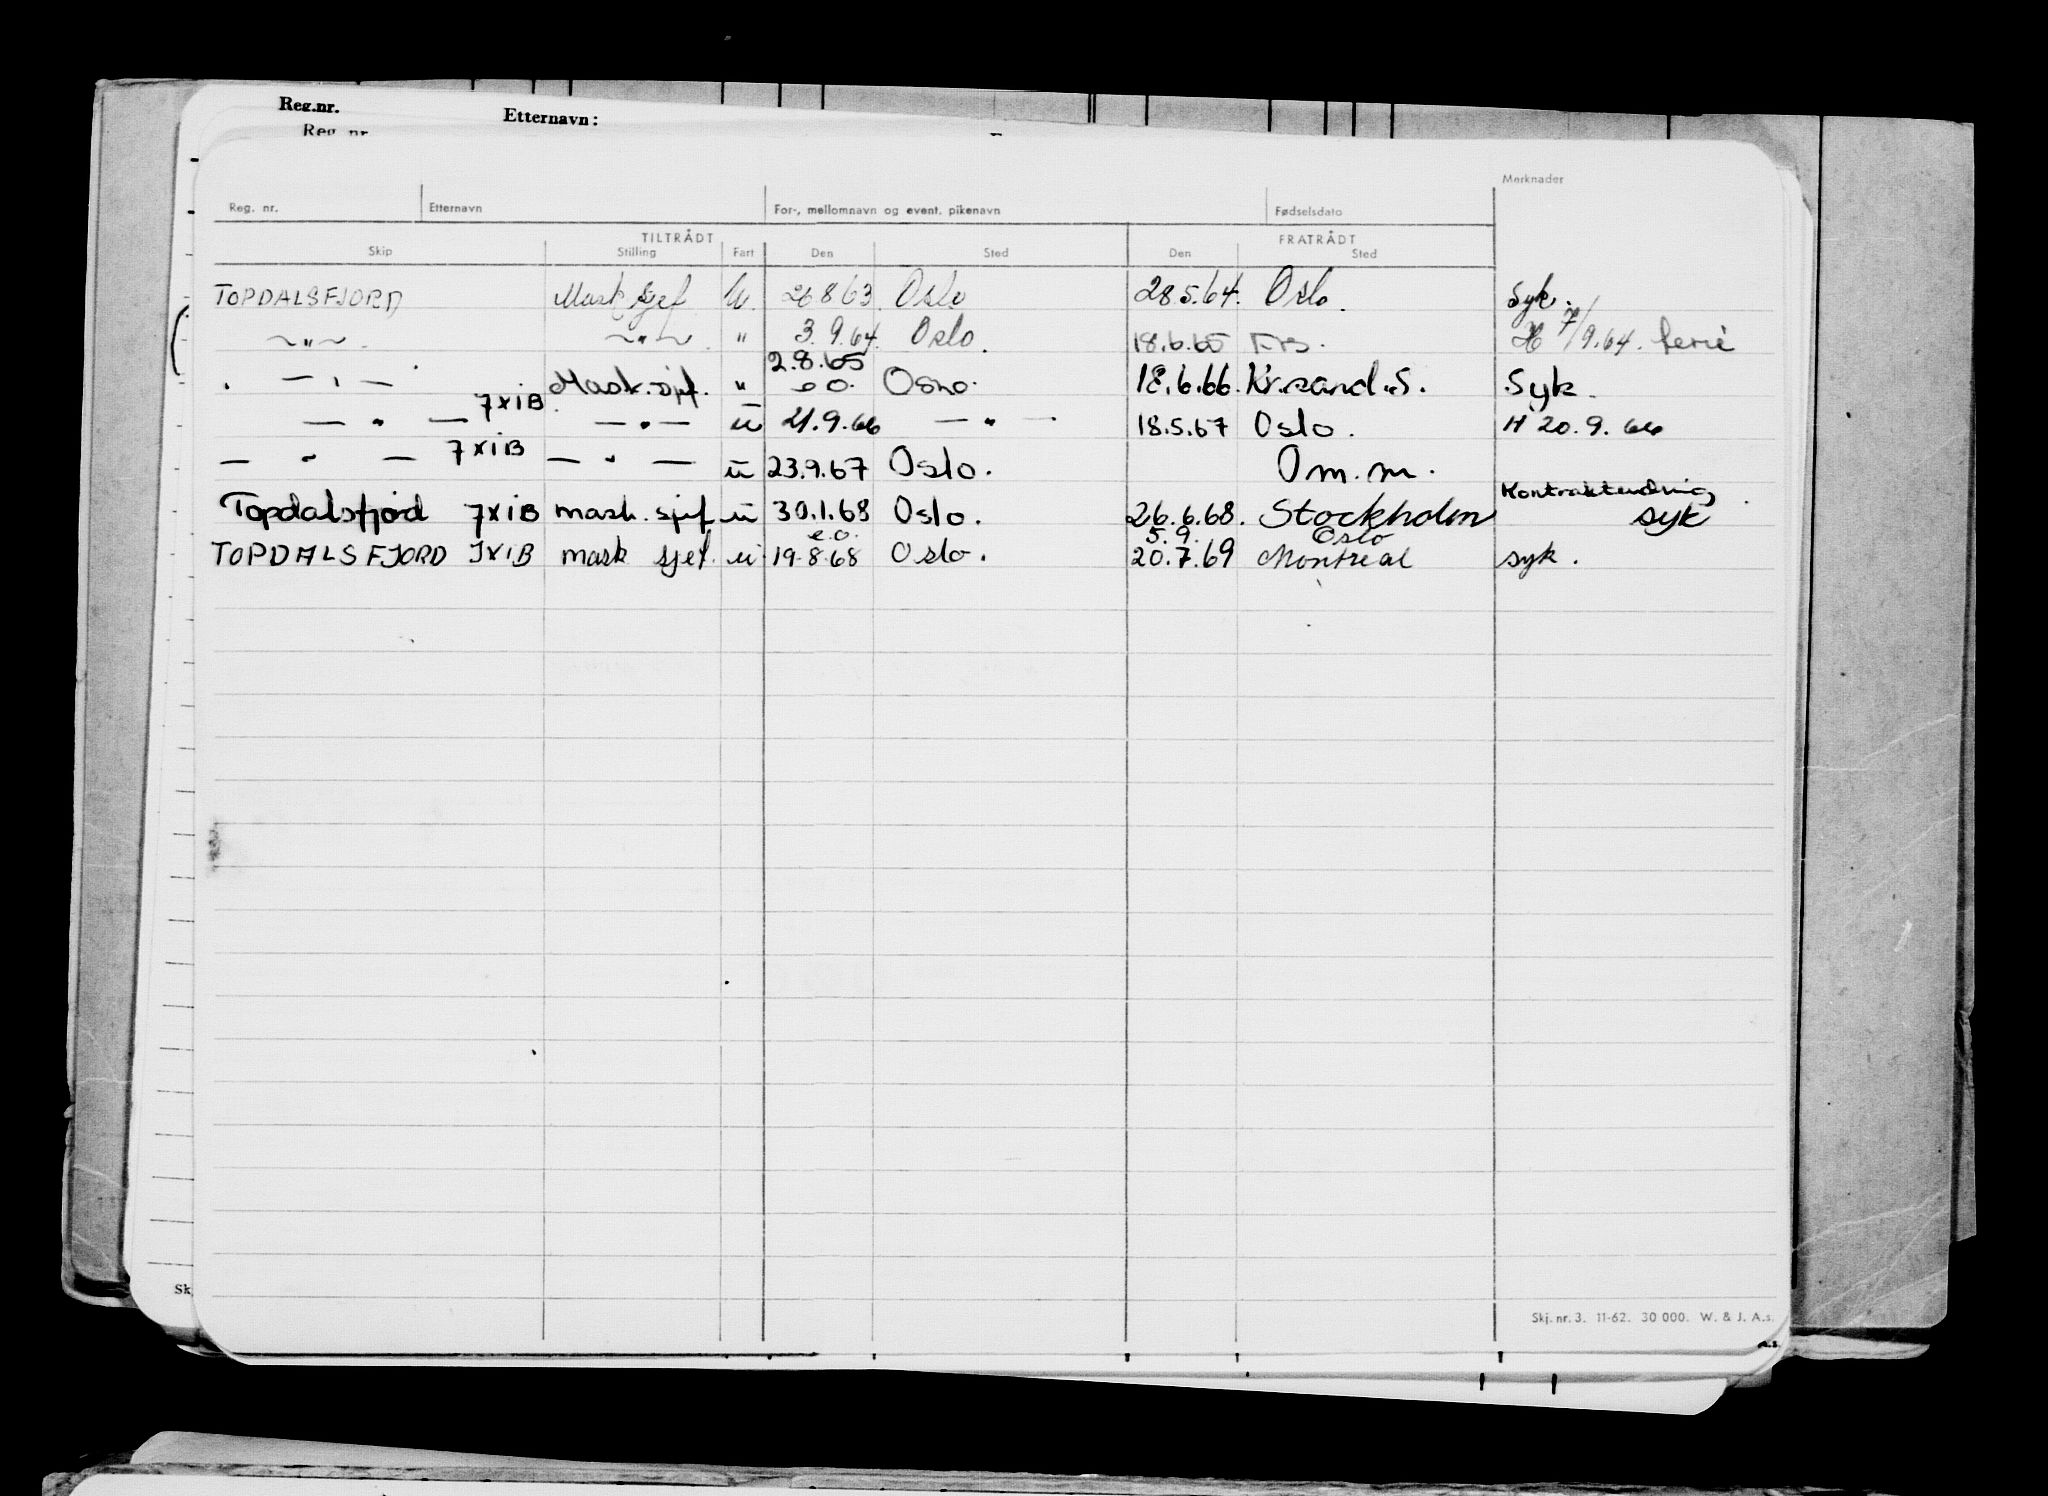 Reg.nr. Etternavn:
Reg. nr.
Merknader
Reg. nr. Etternavn For-, mellomnavn og event. pikenavn Fødselsdato
TILTRÅDT FRATRÅDT
Skip Stilling Fart Den Sted Den Sted
TOPDALSFJORD Mask sjef U. 26 8 63 Oslo 28.5.64. Oslo. Syk.
~"~ ~"~ " 3.9.64. Oslo. 18.6.65 Krs. H 7/9.64. ferie
2.8.65
— " — Mask. sjef. " e o. Oslo. 18.6.66. Kr.sand.S. Syk.
— " — 7XIB — " — u 21.9.66 — " — 18.5.67 Oslo. H 20.9.66
— " — 7XIB — " — u 23.9.67 Oslo. Om.m.
Kontraktendring
Topdalsfjord 7XIB mask. sjef u 30.1.68 Oslo. 26.6.68. Stockholm syk
e.o. 5.9. Oslo
TOPDALSFJORD 7XIB mask sjef. u 19.8.68 Oslo. 20.7.69 Montreal syk.
Skj. nr. 3. 11-62. 30 000. W. & J. A.s.
Sk
A.s.